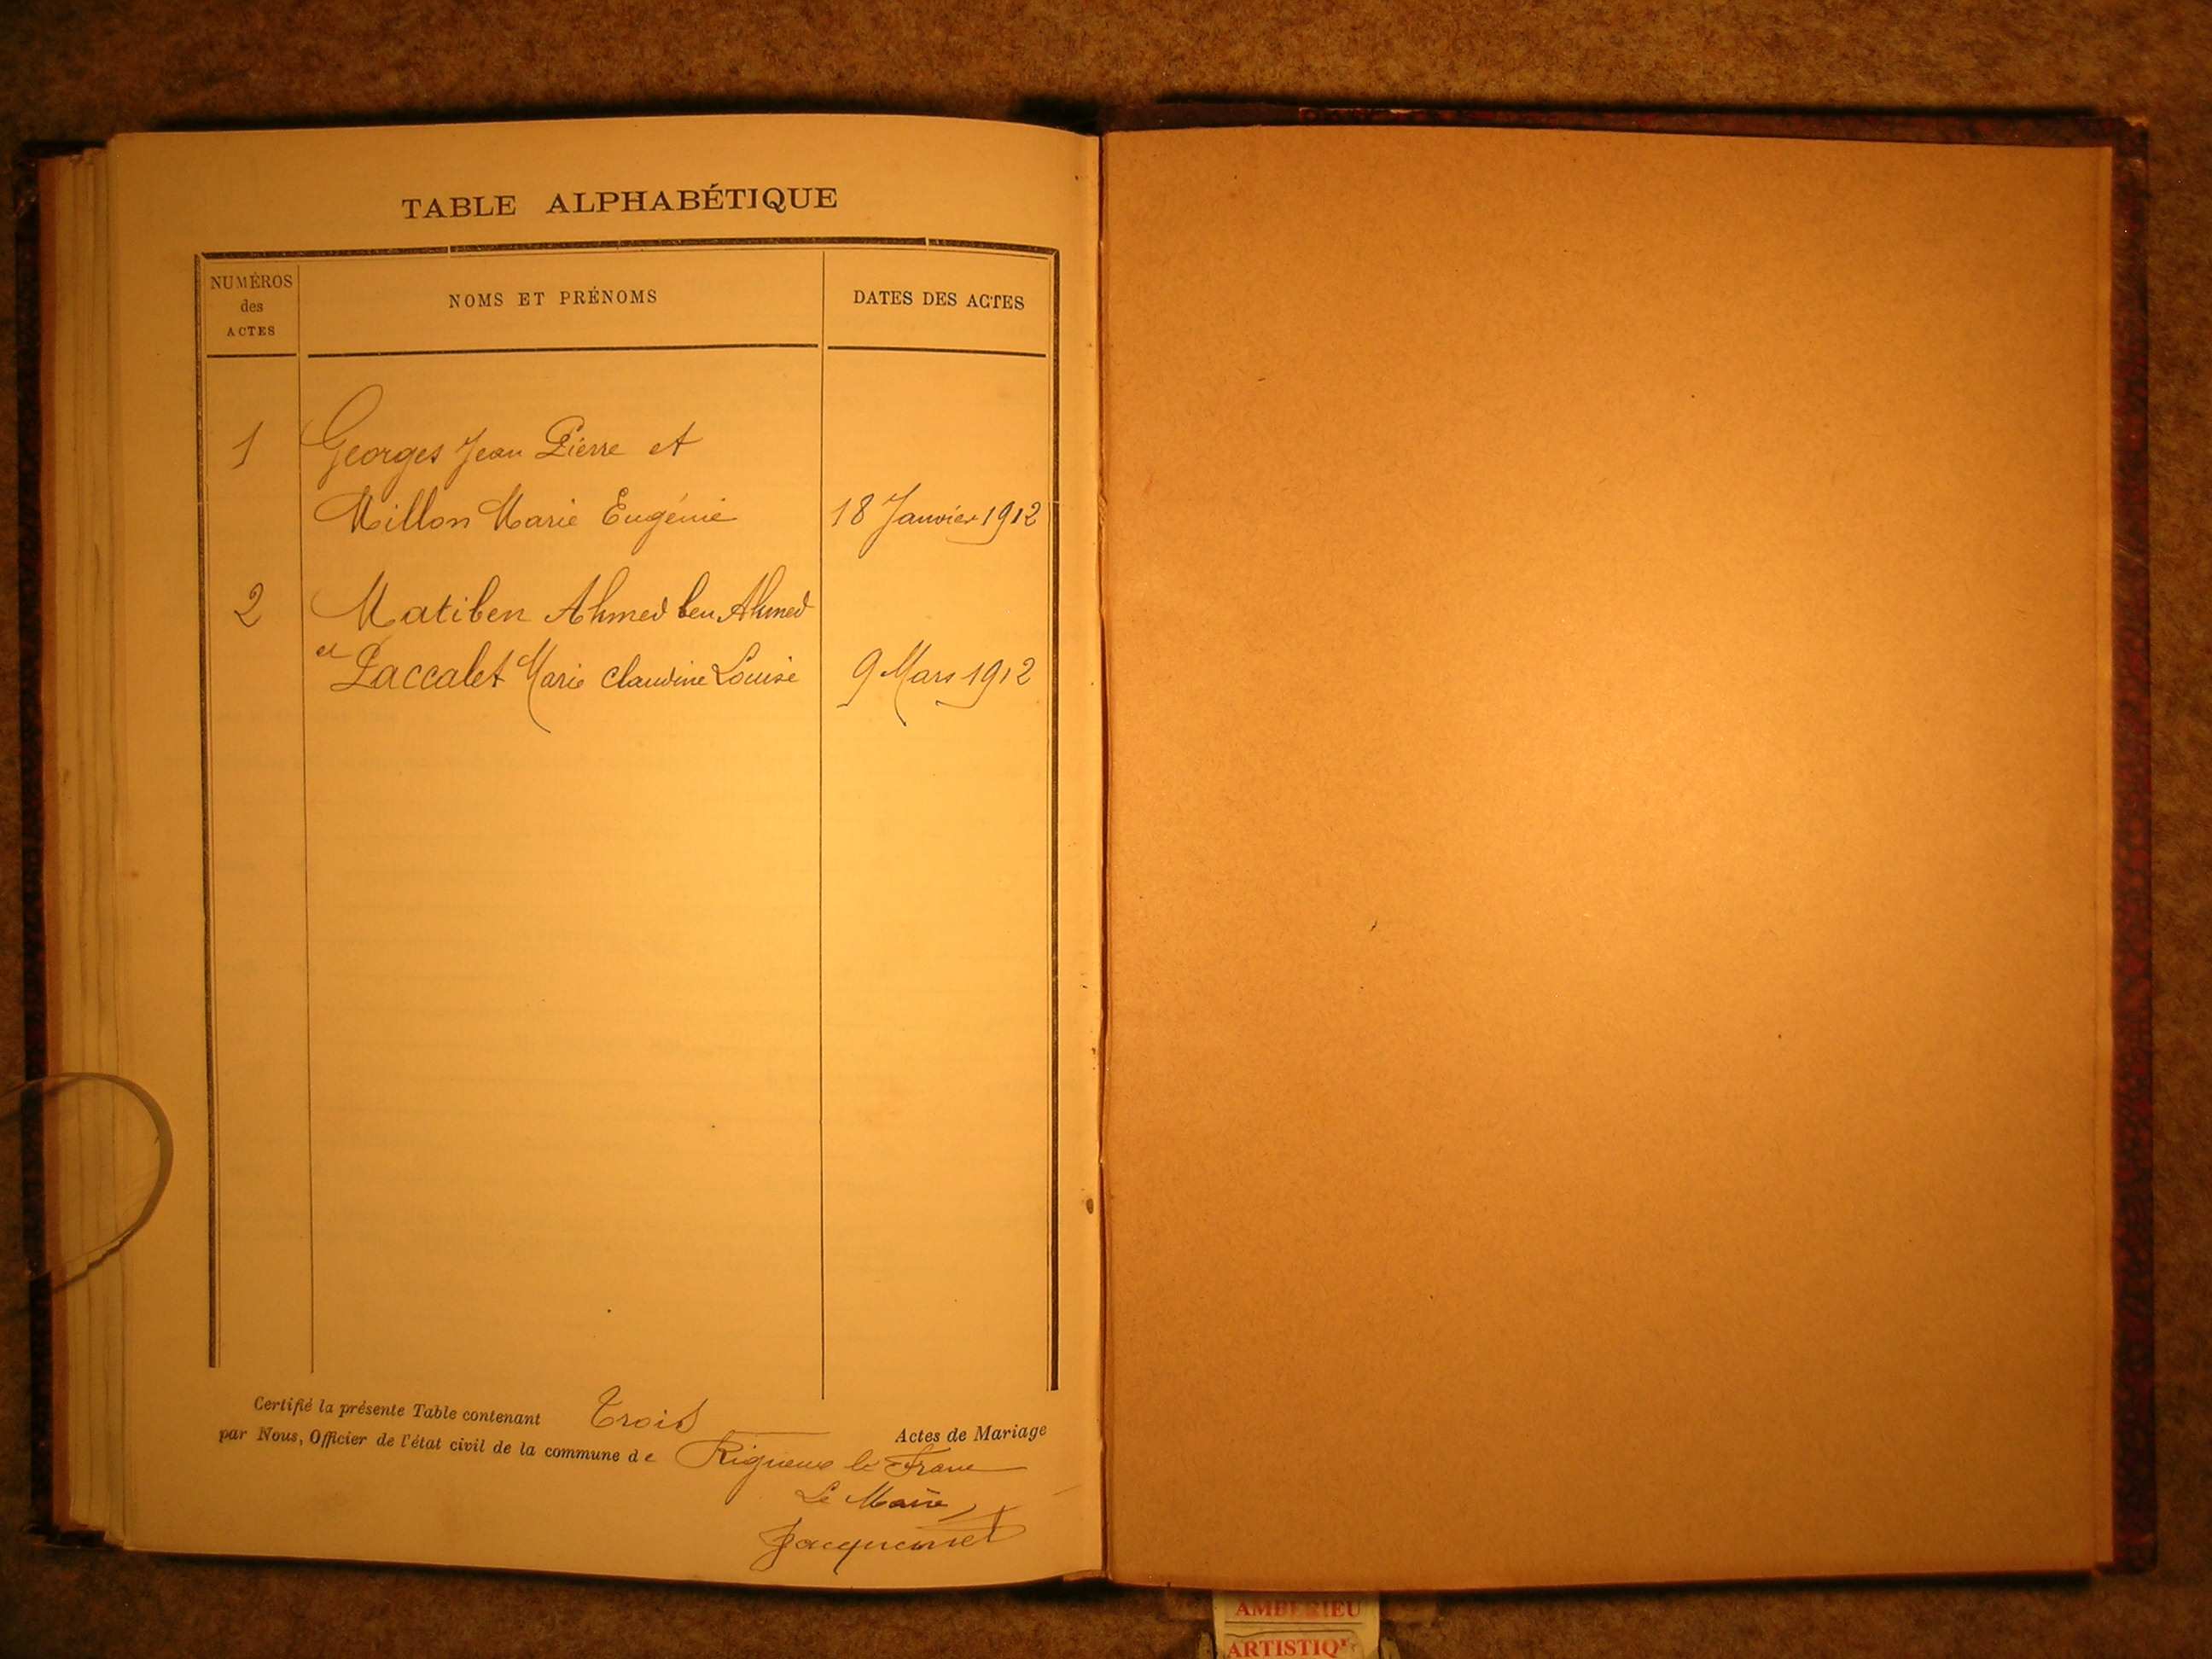 TABLE ALPHABÉTIQUE
NUMÉROS
des
ACTES
NOMS ET PRÉNOMS
DATES DES ACTES
1 Georges Jean Pierre et
Millon Marie Eugénie 18 Janvier 1912
2 Matiben Ahmed ben Ahmed
et Paccalet Marie Claudine Louise 9 Mars 1912
Certifié la présente Table contenant Trois Actes de Mariage
par Nous, Officier de l'état civil de la commune de Rigneux le Franc
Le Maire
AMBERIEU